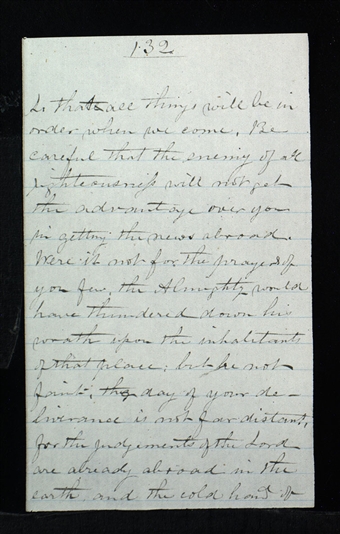 132.
So that all things will be in
order when we come. Be
careful that the enemy of all
righteousness will not get
the advantage over you
in getting the news abroad.
Were it not for the prayers of
you few, the Almighty would
have thundered down his
wrath upon the inhabitants
of that place; but be not
faint, the day of your de-
liverance is not far distant,
for the judgements of the Lord
are already abroad in the
earth and the cold hand of